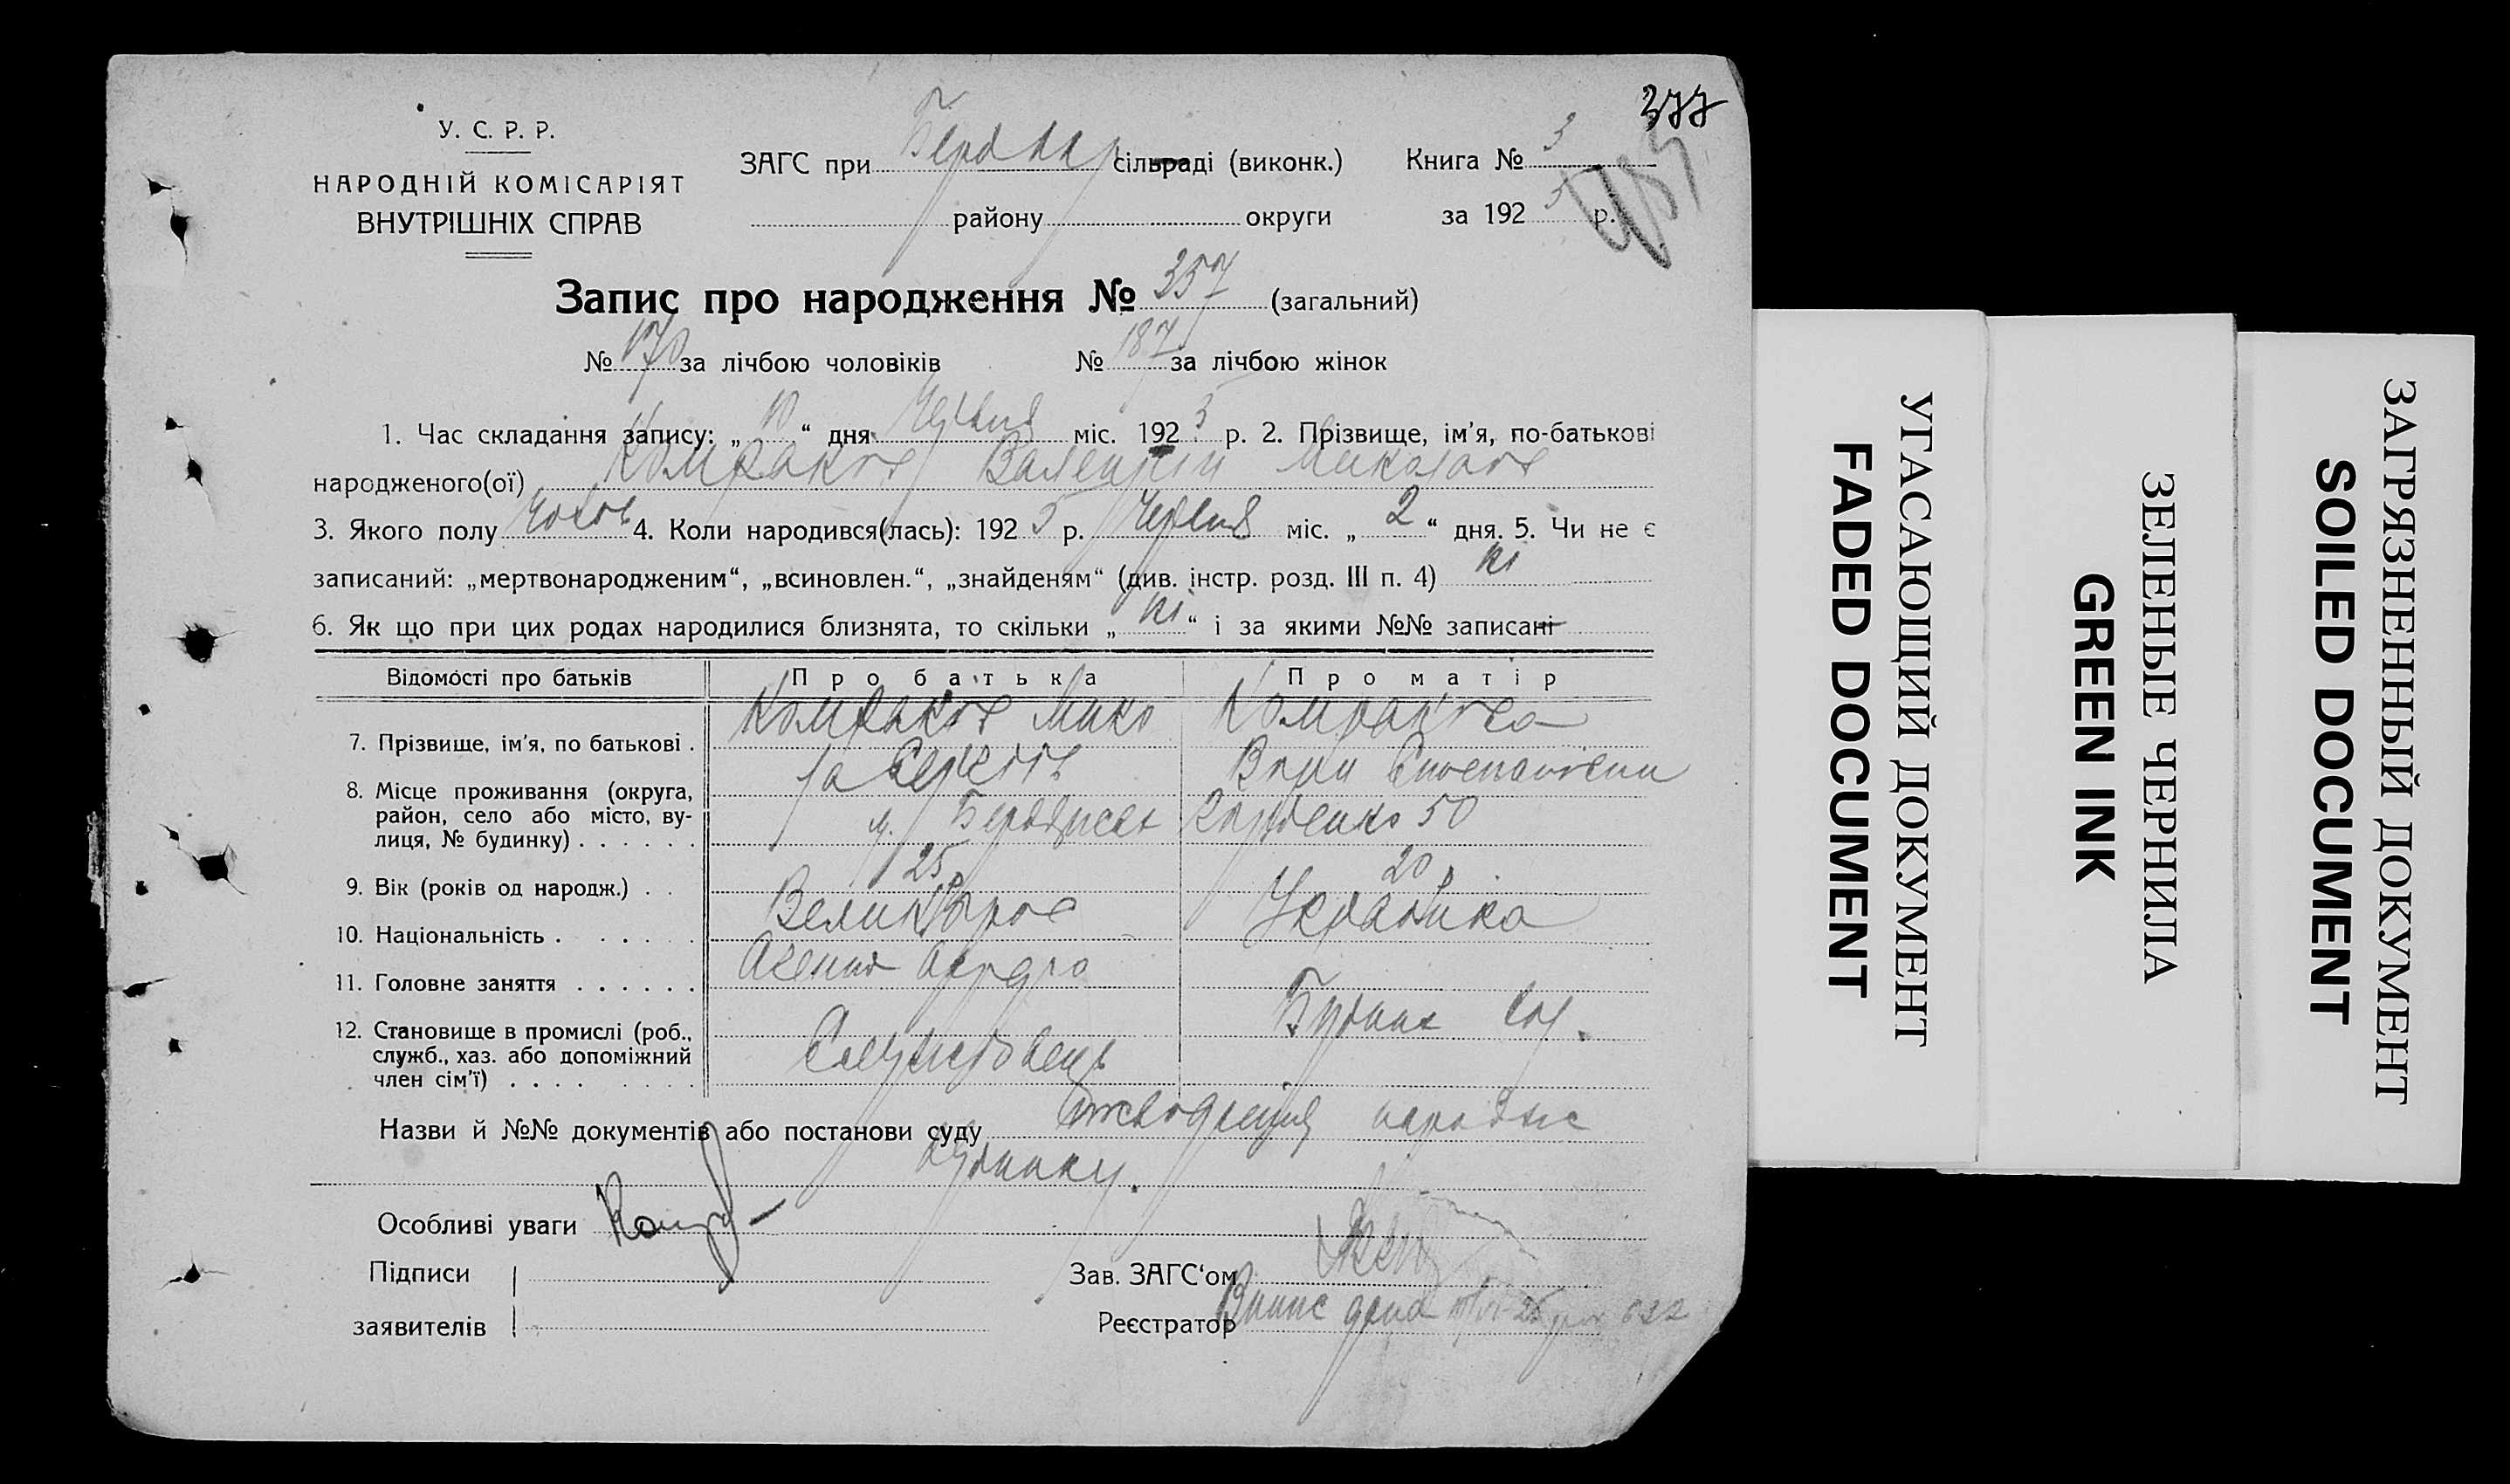 377
У. С. Р. Р.
НАРОДНІЙ КОМІСАРІЯТ
ВНУТРІШНІХ СПРАВ
ЗАГС при сільраді (виконк.) Книга № 3
району округи за 1925 р.
Запис про народження № 357 (загальний)
№ 170 за лічбою чоловіків № 187 за лічбою жінок
1. Час складання запису: „10“ дня Червня міс. 1925 р. 2. Прізвище, ім'я, по-батькові
народженого(ої) Комраков Валентін Миколаов
3. Якого полу Чолов 4. Коли народився(лась): 1925 р. Червня міс. „2“ дня. 5. Чи не є
записаний: „мертвонародженим“, „всиновлен.“, „знайденям“ (див. інстр. розд. III п. 4) ні
6. Як що при цих родах народилися близнята, то скільки „ні“ і за якими №№ записані
Відомости про батьків Про батька Про матір
7. Прізвище, ім'я, по батькові . Комраков Мико Комракова
ла Сергіїв Віри Степановни
8. Місце проживання (округа,
район, село або місто, ву-
лиця, № будинку) . . . . . . м. 50
9. Вік (років од народж.) . . 25 20
10. Національність . . . . . . Великорос Українка
11. Головне заняття . . . . . . Агент
12. Становище в промислі (роб.,
служб., хаз. або допоміжний
член сім'ї) . . . . . . . . Службовець
Назви й №№ документів або постанови суду
будинку.
Особливі уваги
Підписи Зав. ЗАГС‘ом
заявителів Реєстратор Випис дана 622
УГАСАЮЩИЙ ДОКУМЕНТ
FADED DOCUMENT
ЗЕЛЕНЫЕ ЧЕРНИЛА
GREEN INK
ЗАГРЯЗНЕННЫЙ ДОКУМЕНТ
SOILED DOCUMENT